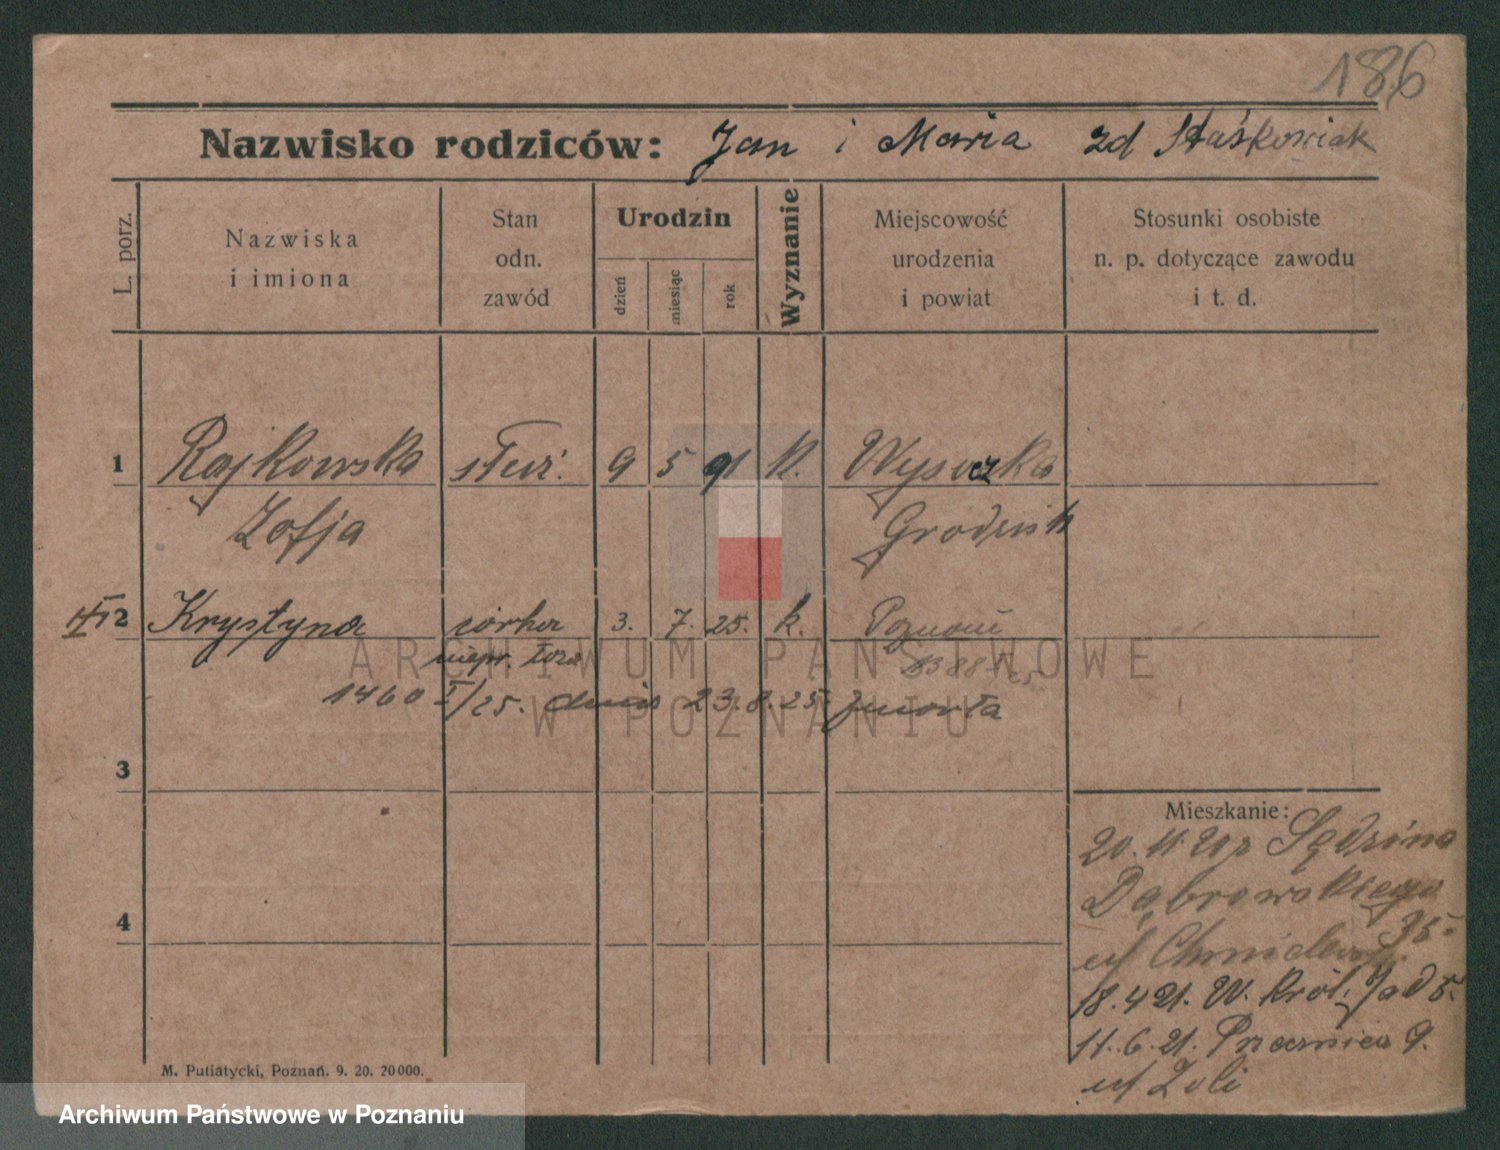 186
Nazwisko rodziców: Jan i Maria zd Staśkowiak
L. porz.
Nazwiska i imiona
Stan odn. zawód
Urodzin
dzień
miesiąc
rok
Wyznanie
Miejscowość urodzenia i powiat
Stosunki osobiste n. p. dotyczące zawodu i t. d.
1 Rajkowska służ. 9 5 91 k. Wysoczka
Zofja Grodzisk
2 Krystyna córka 3. 7. 25. k. Poznań
niepr. łoża
1460 I/25. dnia 23.8.25. zmarła
3
4
Mieszkanie:
20.11.20 z Sędzina
Dąbrowskiego
35
18.4 21. W. Król. Jad 5.
11.6.21. 9.
M. Putiatycki, Poznań. 9. 20. 20000.
ARCHIWUM PAŃSTWOWE
W POZNANIU
Archiwum Państwowe w Poznaniu